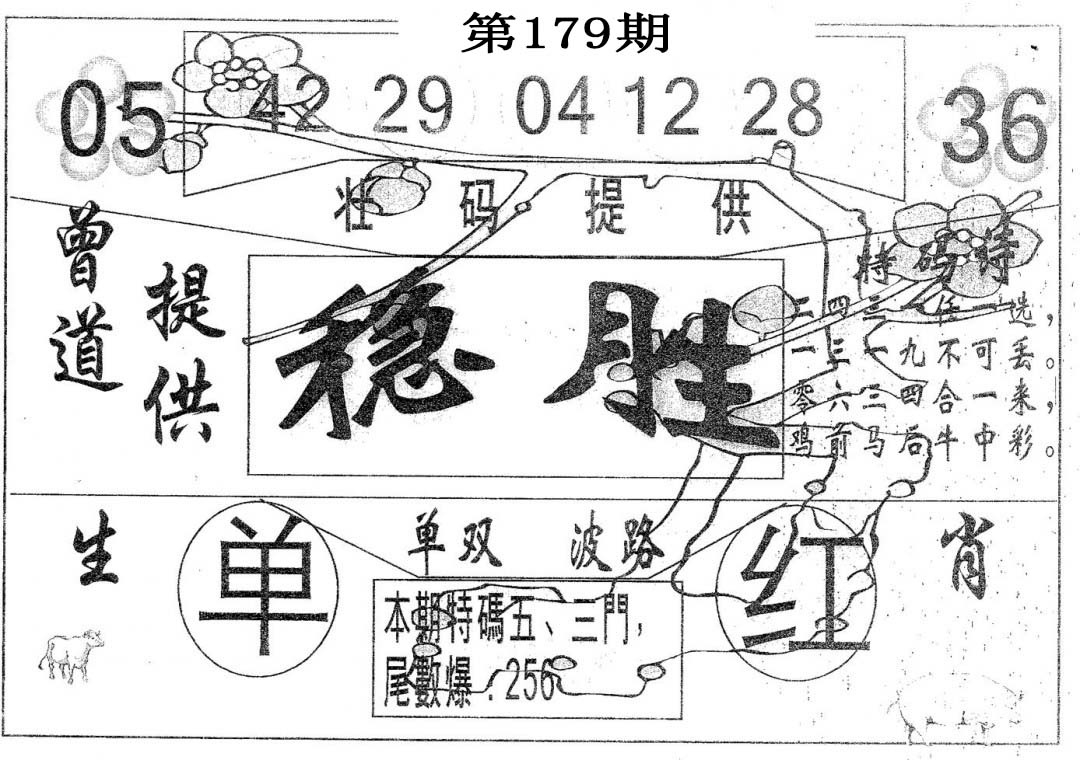 第179期
05 42 29 04 12 28 36
壮码提供
曾道
提供
稳胜
特码诗
二四三一任一选，
一三一九不可丢。
零六三四合一来，
鸡前马后牛中彩。
生肖
单双 波路
单
红
本期特碼五、三門，
尾數爆：256